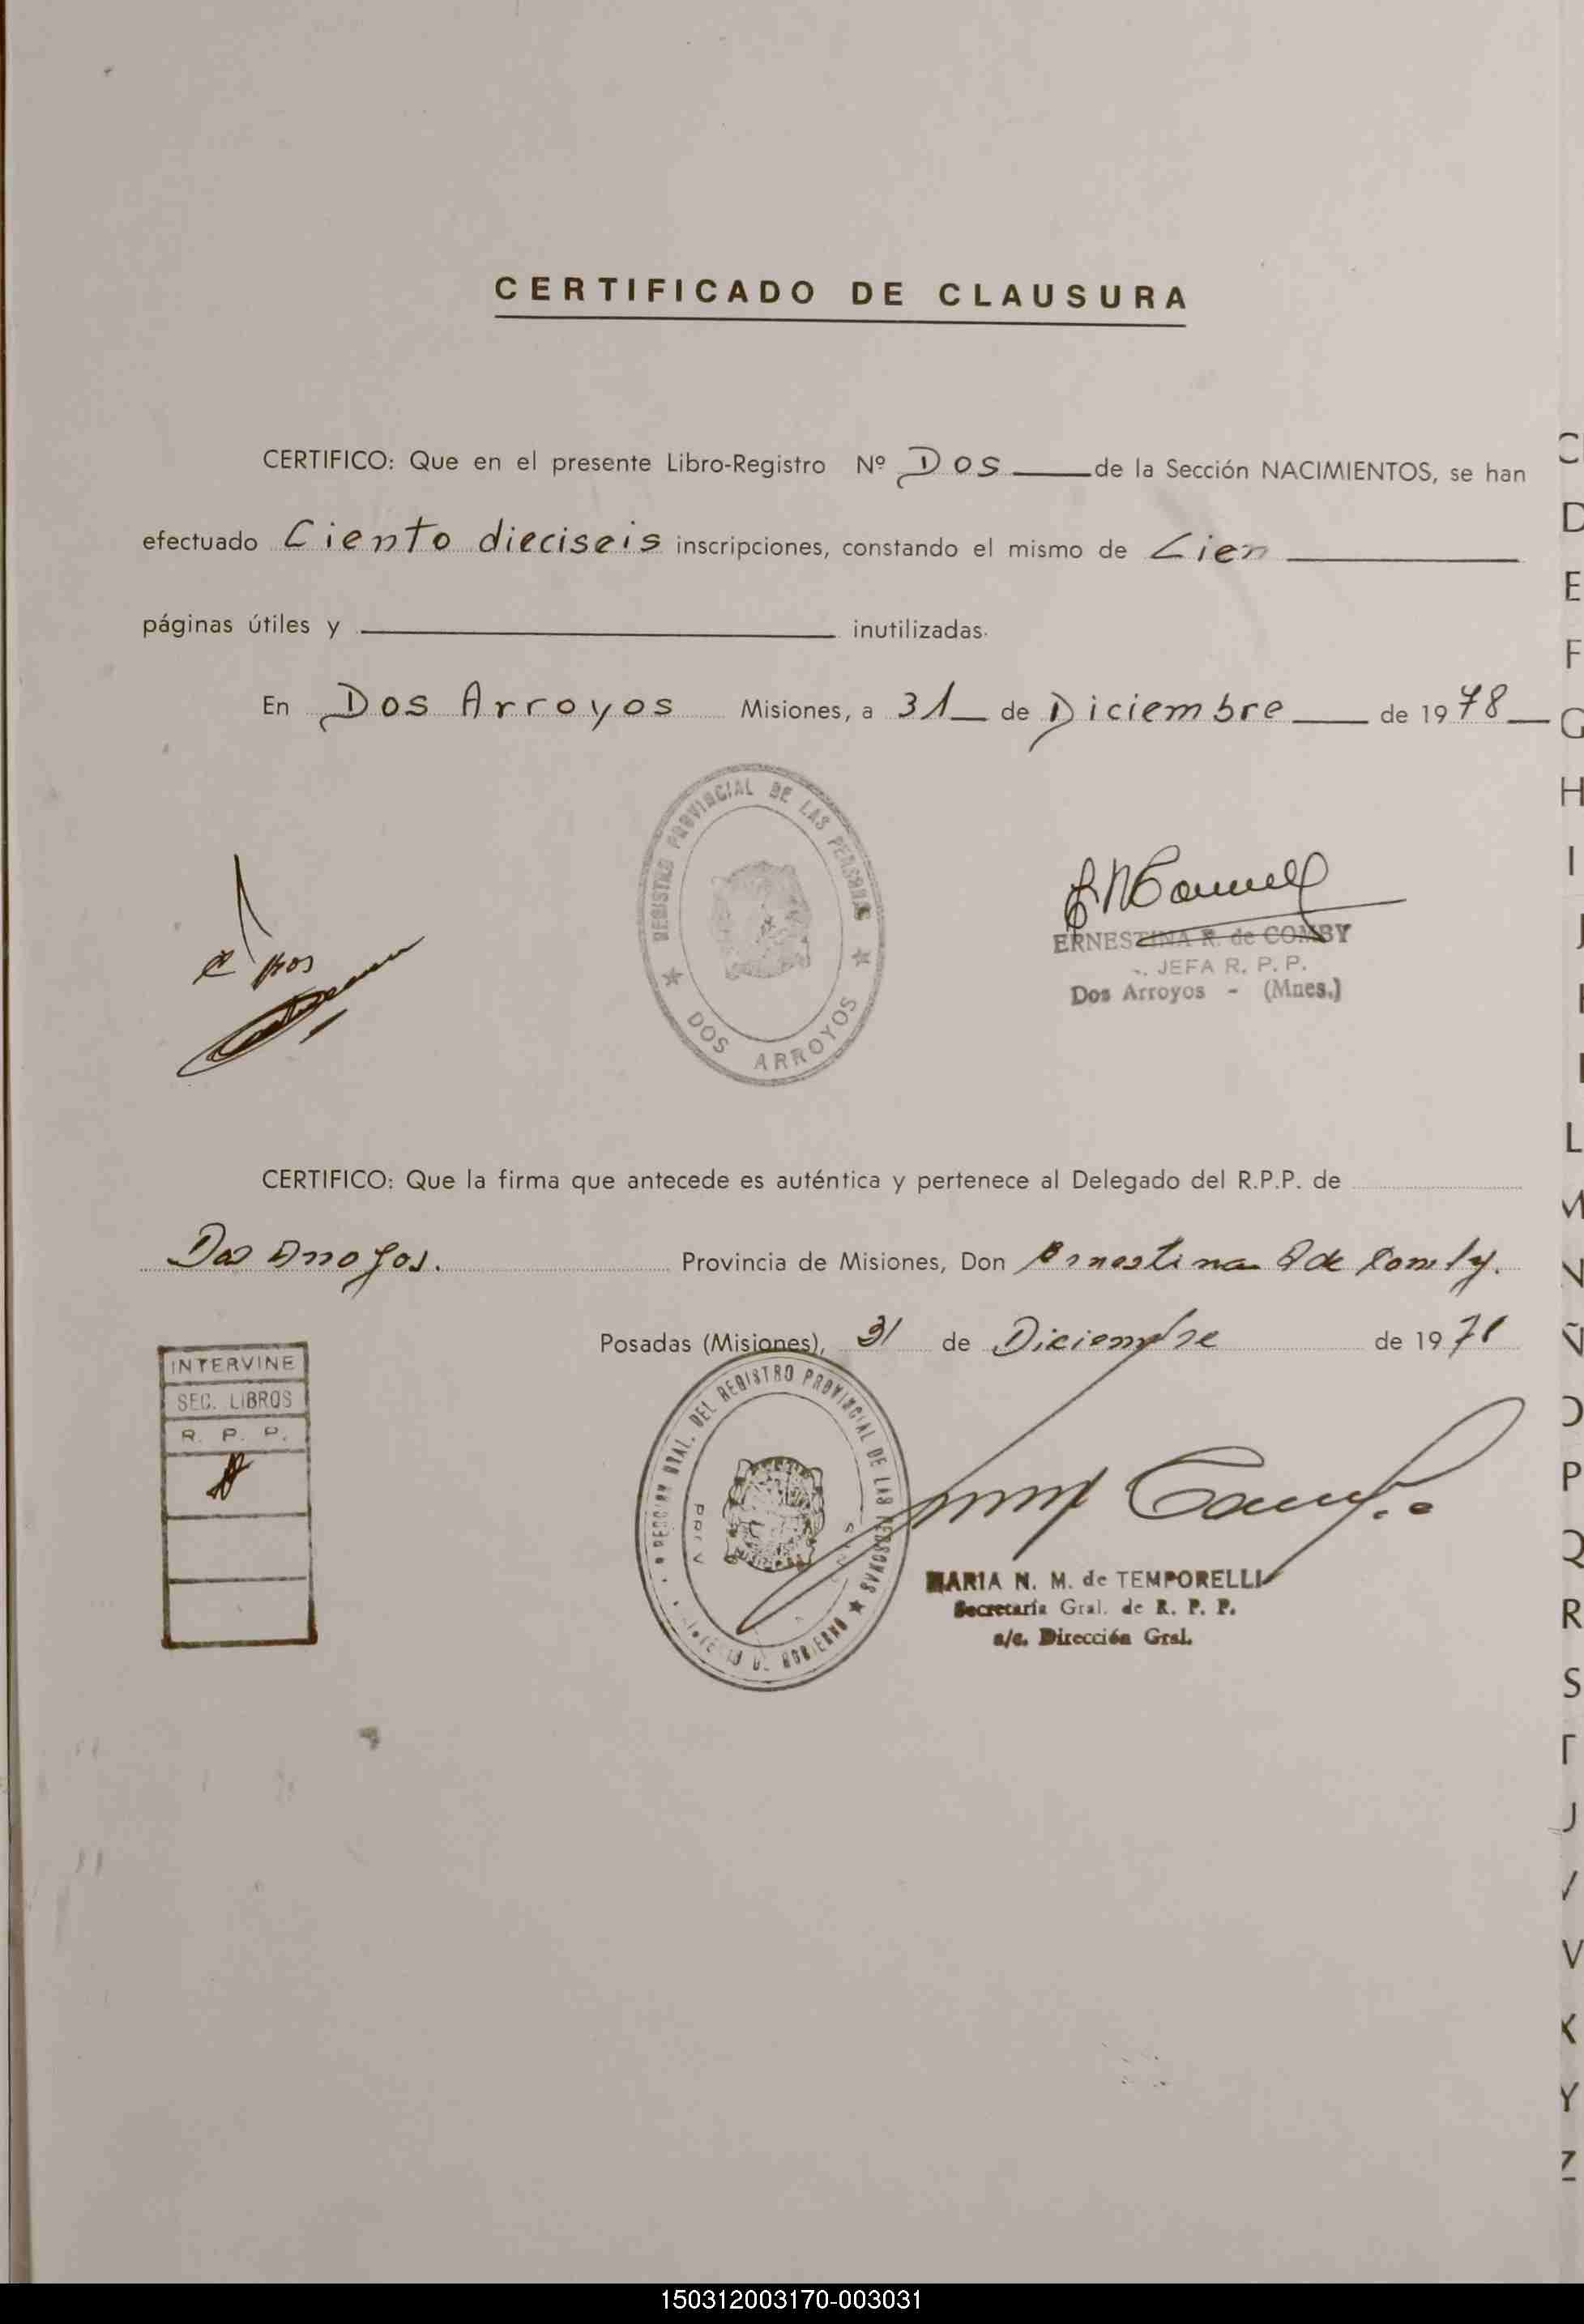 CERTIFICADO DE CLAUSURA
CERTIFICO: Que en el presente Libro-Registro Nº Dos de la Sección NACIMIENTOS, se han
efectuado Ciento dieciseis inscripciones, constando el mismo de Cien
páginas útiles y inutilizadas.
En Dos Arroyos Misiones, a 31 de Diciembre de 1978
REGISTRO PROVINCIAL DE LAS PERSONAS
DOS ARROYOS
ERNESTINA R. de COMBY
JEFA R. P. P.
Dos Arroyos - (Mnes.)
CERTIFICO: Que la firma que antecede es auténtica y pertenece al Delegado del R.P.P. de
Dos Arroyos. Provincia de Misiones, Don Ernestina R de Comby.
Posadas (Misiones), 31 de Diciembre de 1978
INTERVINE
SEC. LIBROS
R. P. P.
GRAL. DEL REGISTRO PROVINCIAL DE LAS PERSONAS
MARIA N. M. de TEMPORELLI
Secretaria Gral. de R. P. P.
a/c. Dirección Gral.
C
D
E
F
G
H
I
J
L
M
N
Ñ
O
P
Q
R
S
T
U
V
X
Y
Z
150312003170-003031